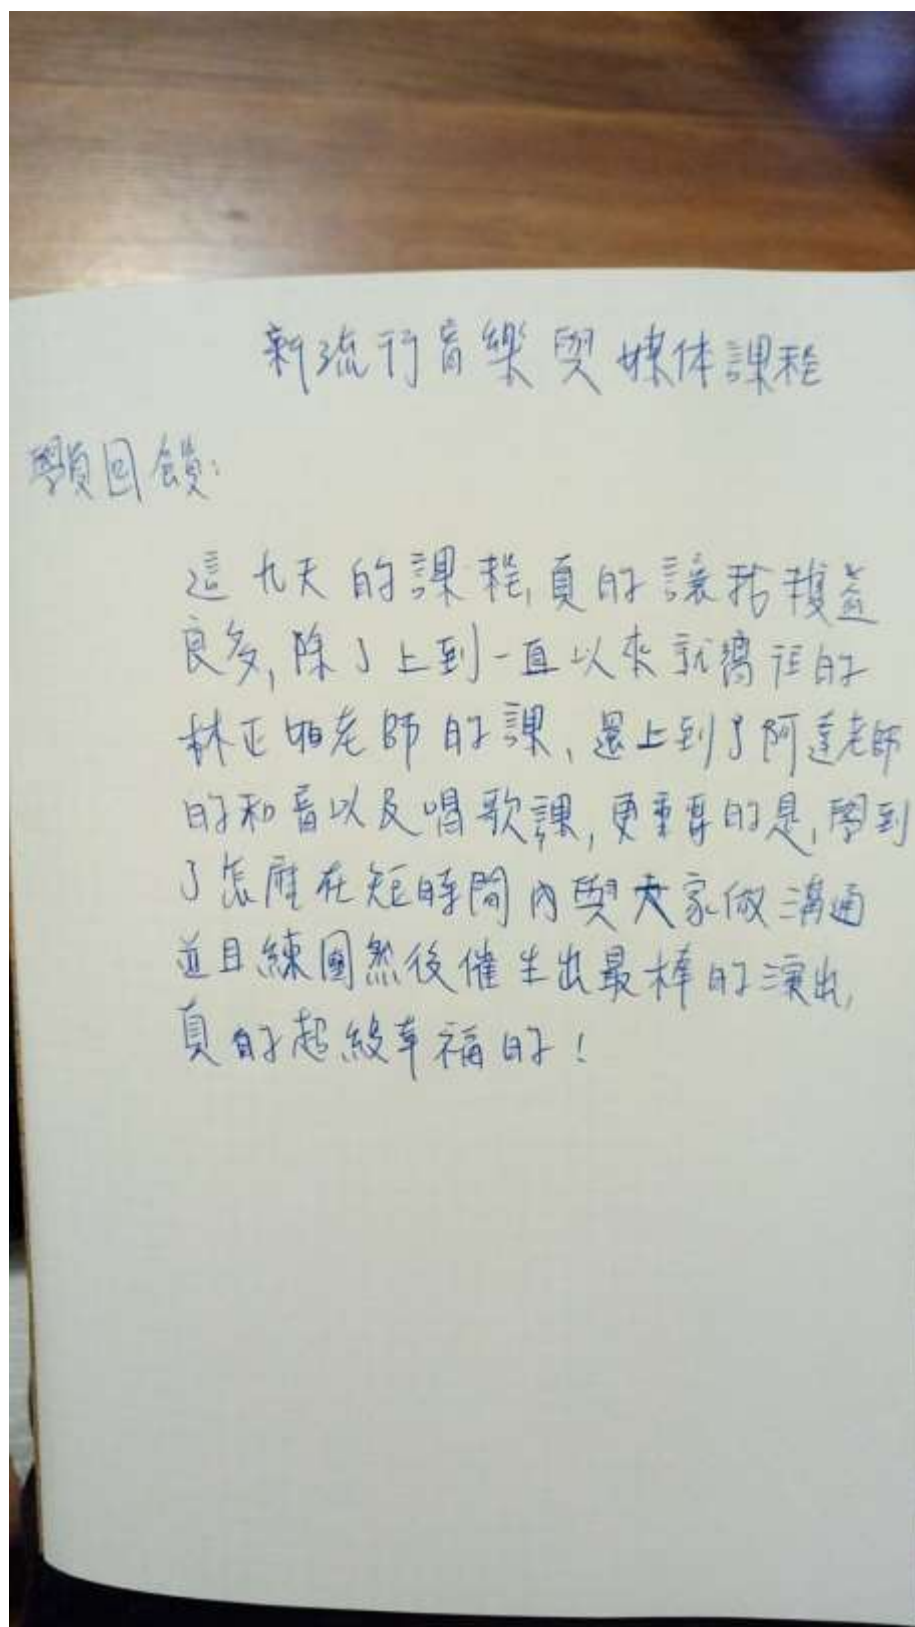 新流行音樂與媒体課程
學員回饋:
這九天的課程,真的讓我穫益
良多,除了上到一直以來就嚮往的
林正如老師的課、還上到了阿達老師
的和音以及唱歌課,更重要的是,學到
了怎麼在短時間內與大家做溝通
並且練團然後催生出最棒的演出,
真的超級幸福的!